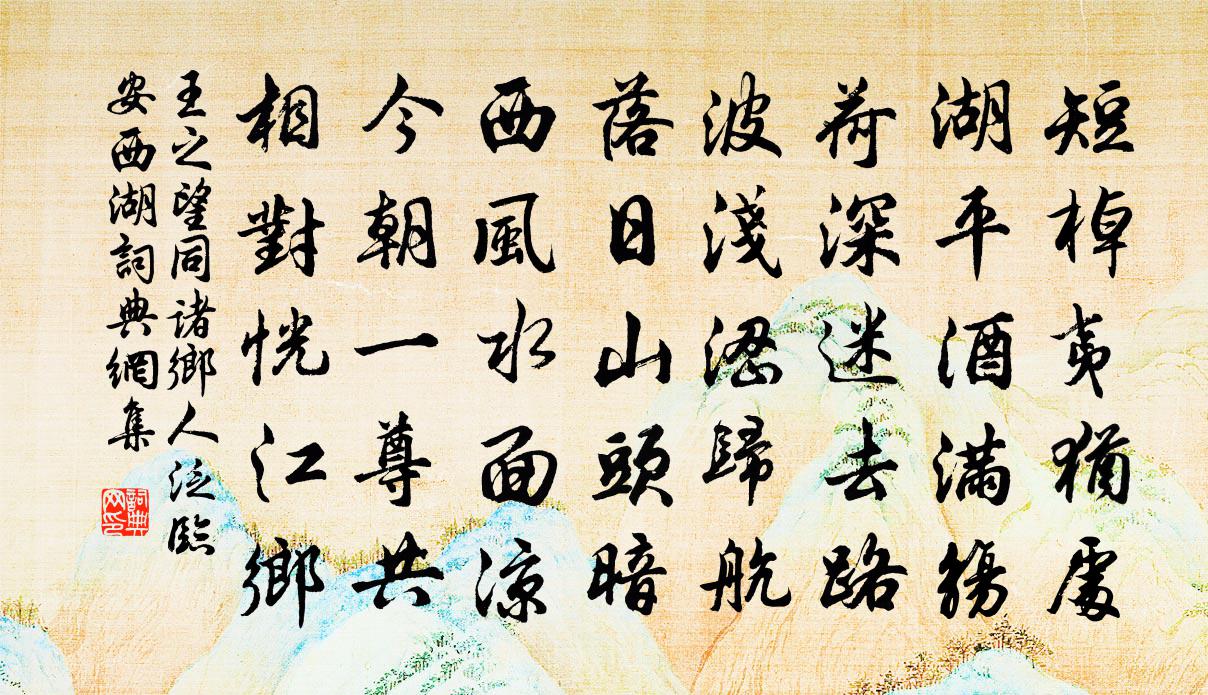 短棹夷猶處
湖平酒滿觴
荷深迷去路
波淺澀歸航
落日山頭暗
西風水面涼
今朝一尊共
相對恍江鄉
王之望同諸鄉人泛臨
安西湖詞典網集
詞典
网印